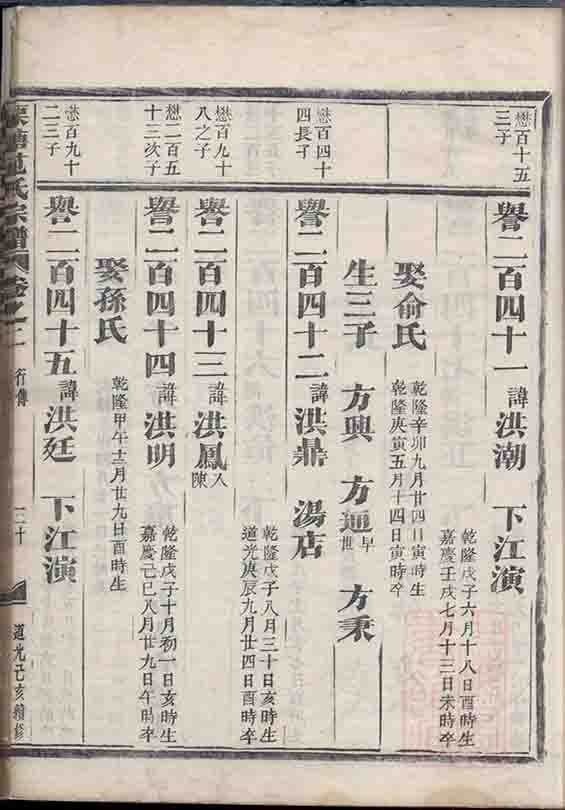 懋百十五
三子
譽二百四十一 諱洪潮 下江演
乾隆戊子六月十八日酉時生
嘉慶壬戌七月十三日未時卒
娶俞氏
乾隆辛卯九月廿四日寅時生
乾隆庚寅五月十四日寅時卒
生三子 方興 方通 早世 方秉
懋百四十
四長子
譽二百四十二 諱洪鼎 湯店
乾隆戊子八月三十日亥時生
道光庚辰九月廿四日酉時卒
懋百九十
八之子
譽二百四十三 諱洪鳳 入陳
懋二百五
十三次子
譽二百四十四 諱洪明
乾隆戊子十月初一日亥時生
嘉慶己巳八月廿九日午時卒
娶孫氏
乾隆甲午十二月廿九日酉時生
懋百九十
二三子
譽二百四十五 諱洪廷 下江演
氏宗譜 卷之二 行傳 二十 道光己亥續修